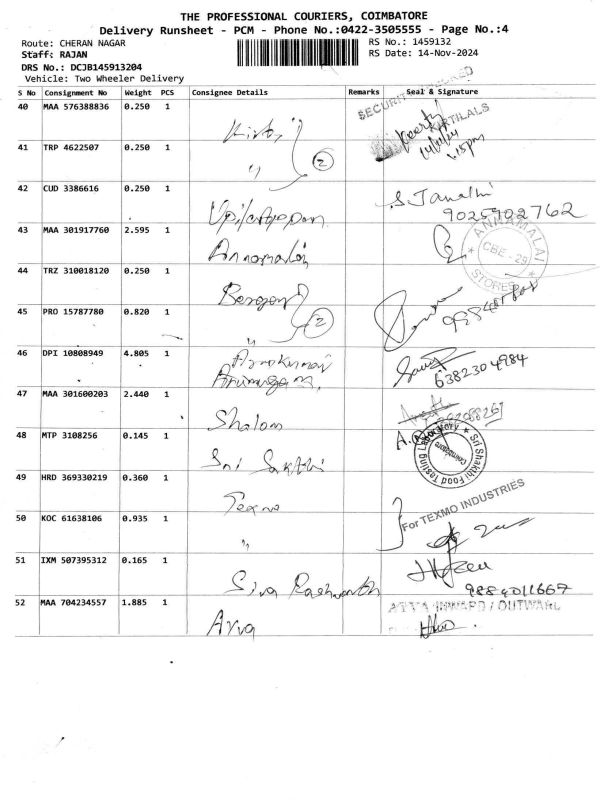 THE PROFESSIONAL COURIERS, COIMBATORE
Delivery Runsheet - PCM - Phone No.:0422-3505555 - Page No.:4
Route: CHERAN NAGAR
RS No.: 1459132
Staff: RAJAN
RS Date: 14-Nov-2024
DRS No.: DCJB145913204
Vehicle: Two Wheeler Delivery
S No Consignment No Weight PCS Consignee Details Remarks Seal & Signature
40 MAA 576388836 0.250 1
KIRTILALS
14/11/24
1.15pm
41 TRP 4622507 0.250 1
" 2
42 CUD 3386616 0.250 1 S. Janathi
9025902762
43 MAA 301917760 2.595 1 Annamalai
ANNAMALAI STORES CBE - 29
44 TRZ 310018120 0.250 1
45 PRO 15787780 0.820 1
" 2
46 DPI 10808949 4.805 1
Arumugam
6382304984
47 MAA 301600203 2.440 1
Shalom
48 MTP 3108256 0.145 1
Sri Sakthi
Sri Shakthi Food Testing Laboratory Coimbatore
49 HRD 369330219 0.360 1
Texmo
For TEXMO INDUSTRIES
50 KOC 61638106 0.935 1
"
51 IXM 507395312 0.165 1
Siva Rashwanth
9884011667
52 MAA 704234557 1.885 1
INWARD / OUTWARD
Arya